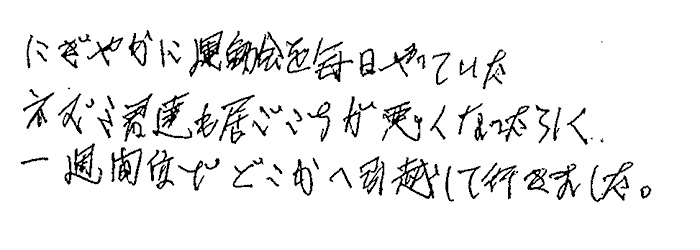 にぎやかに運動会を毎日やっていた
ネズミ君達も居ごこちが悪くなったらしく、
一週間位でどこかへ引越して行きました。